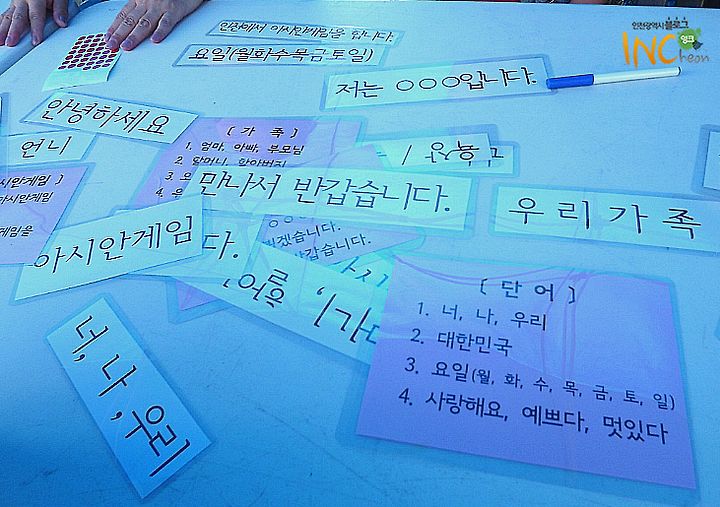 인천광역시블로그
INCheon
인천에서 아시안게임을 합니다.
요일(월화수목금토일)
저는 ○○○입니다.
안녕하세요
언니
[ 가 족 ]
1. 엄마, 아빠, 부모님
2. 할머니, 할아버지
만나서 반갑습니다.
우리가족
아시안게임
다.
습니다.
반갑습니다.
[ 단 어 ]
1. 너, 나, 우리
2. 대한민국
3. 요일(월, 화, 수, 목, 금, 토, 일)
4. 사랑해요, 예쁘다, 멋있다
너, 나, 우리